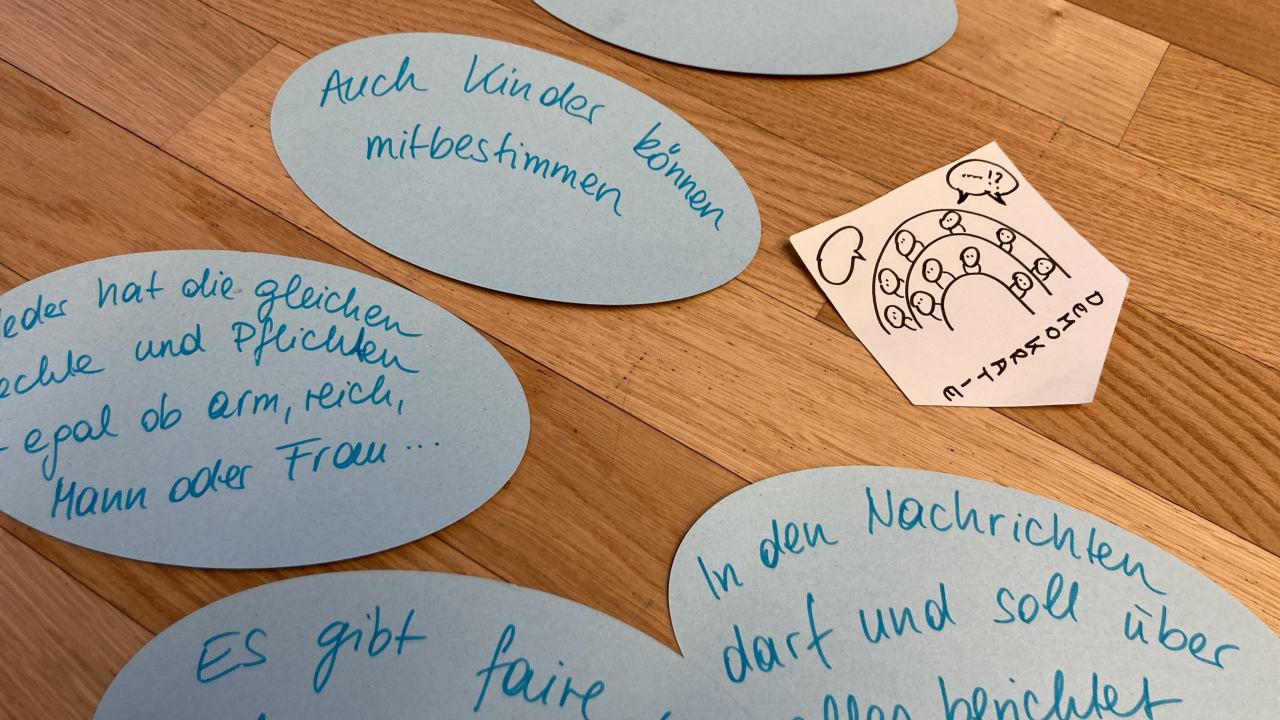 Auch Kinder können
mitbestimmen
!?
DEMOKRATIE
Jeder hat die gleichen
Rechte und Pflichten
- egal ob arm, reich,
Mann oder Frau...
In den Nachrichten
darf und soll über
berichtet
Es gibt faire